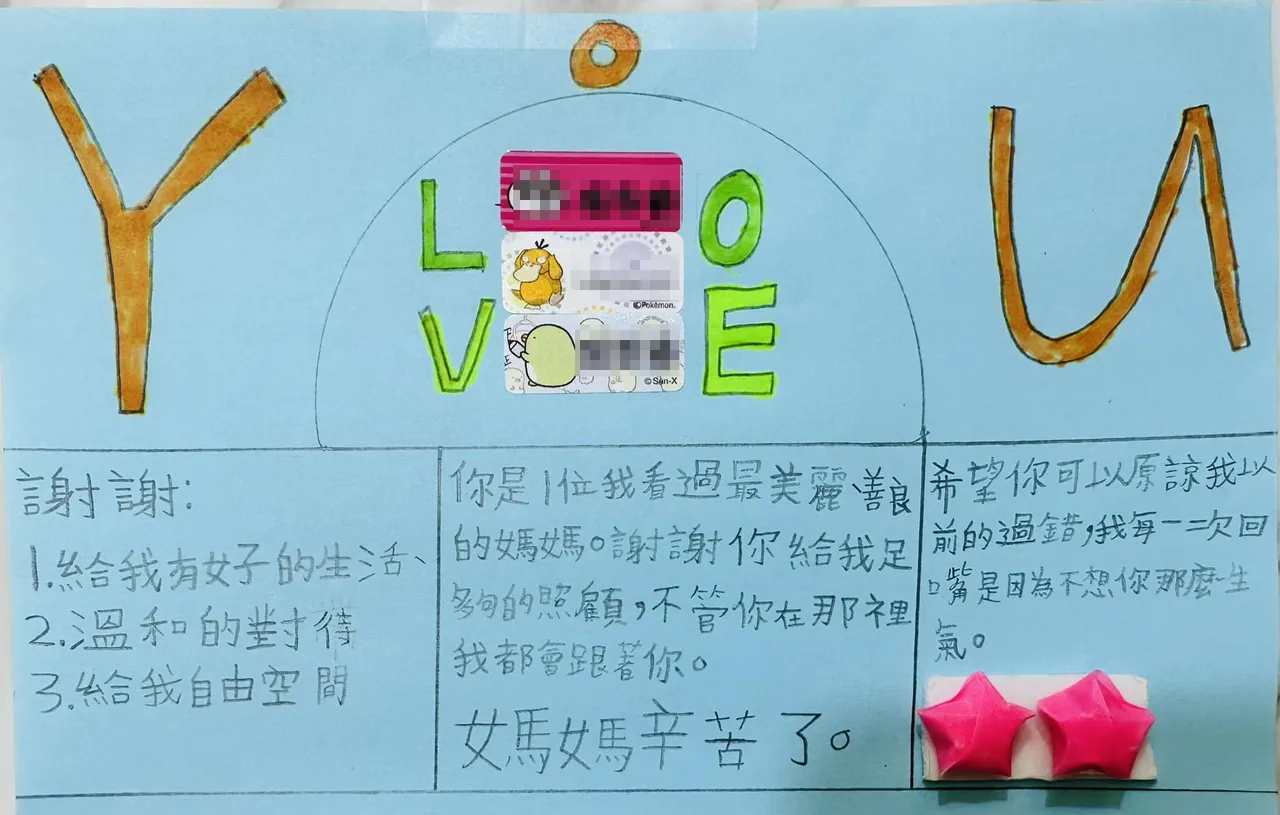 Y O U
L O
V E
©Pokémon.
©San-X
謝謝:
1.給我有女子的生活、
2.溫和的對待
3.給我自由空間
你是1位我看過最美麗、善良
的媽媽。謝謝你給我足
夠的照顧,不管你在那裡
我都會跟著你。
媽媽辛苦了。
希望你可以原諒我以
前的過錯,我每一二次回
嘴是因為不想你那麼生
氣。